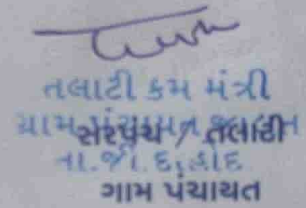 તલાટી કમ મંત્રી
ગ્રામ
સરપંચ / તલાટી
તા.જી. દાહોદ
ગામ પંચાયત